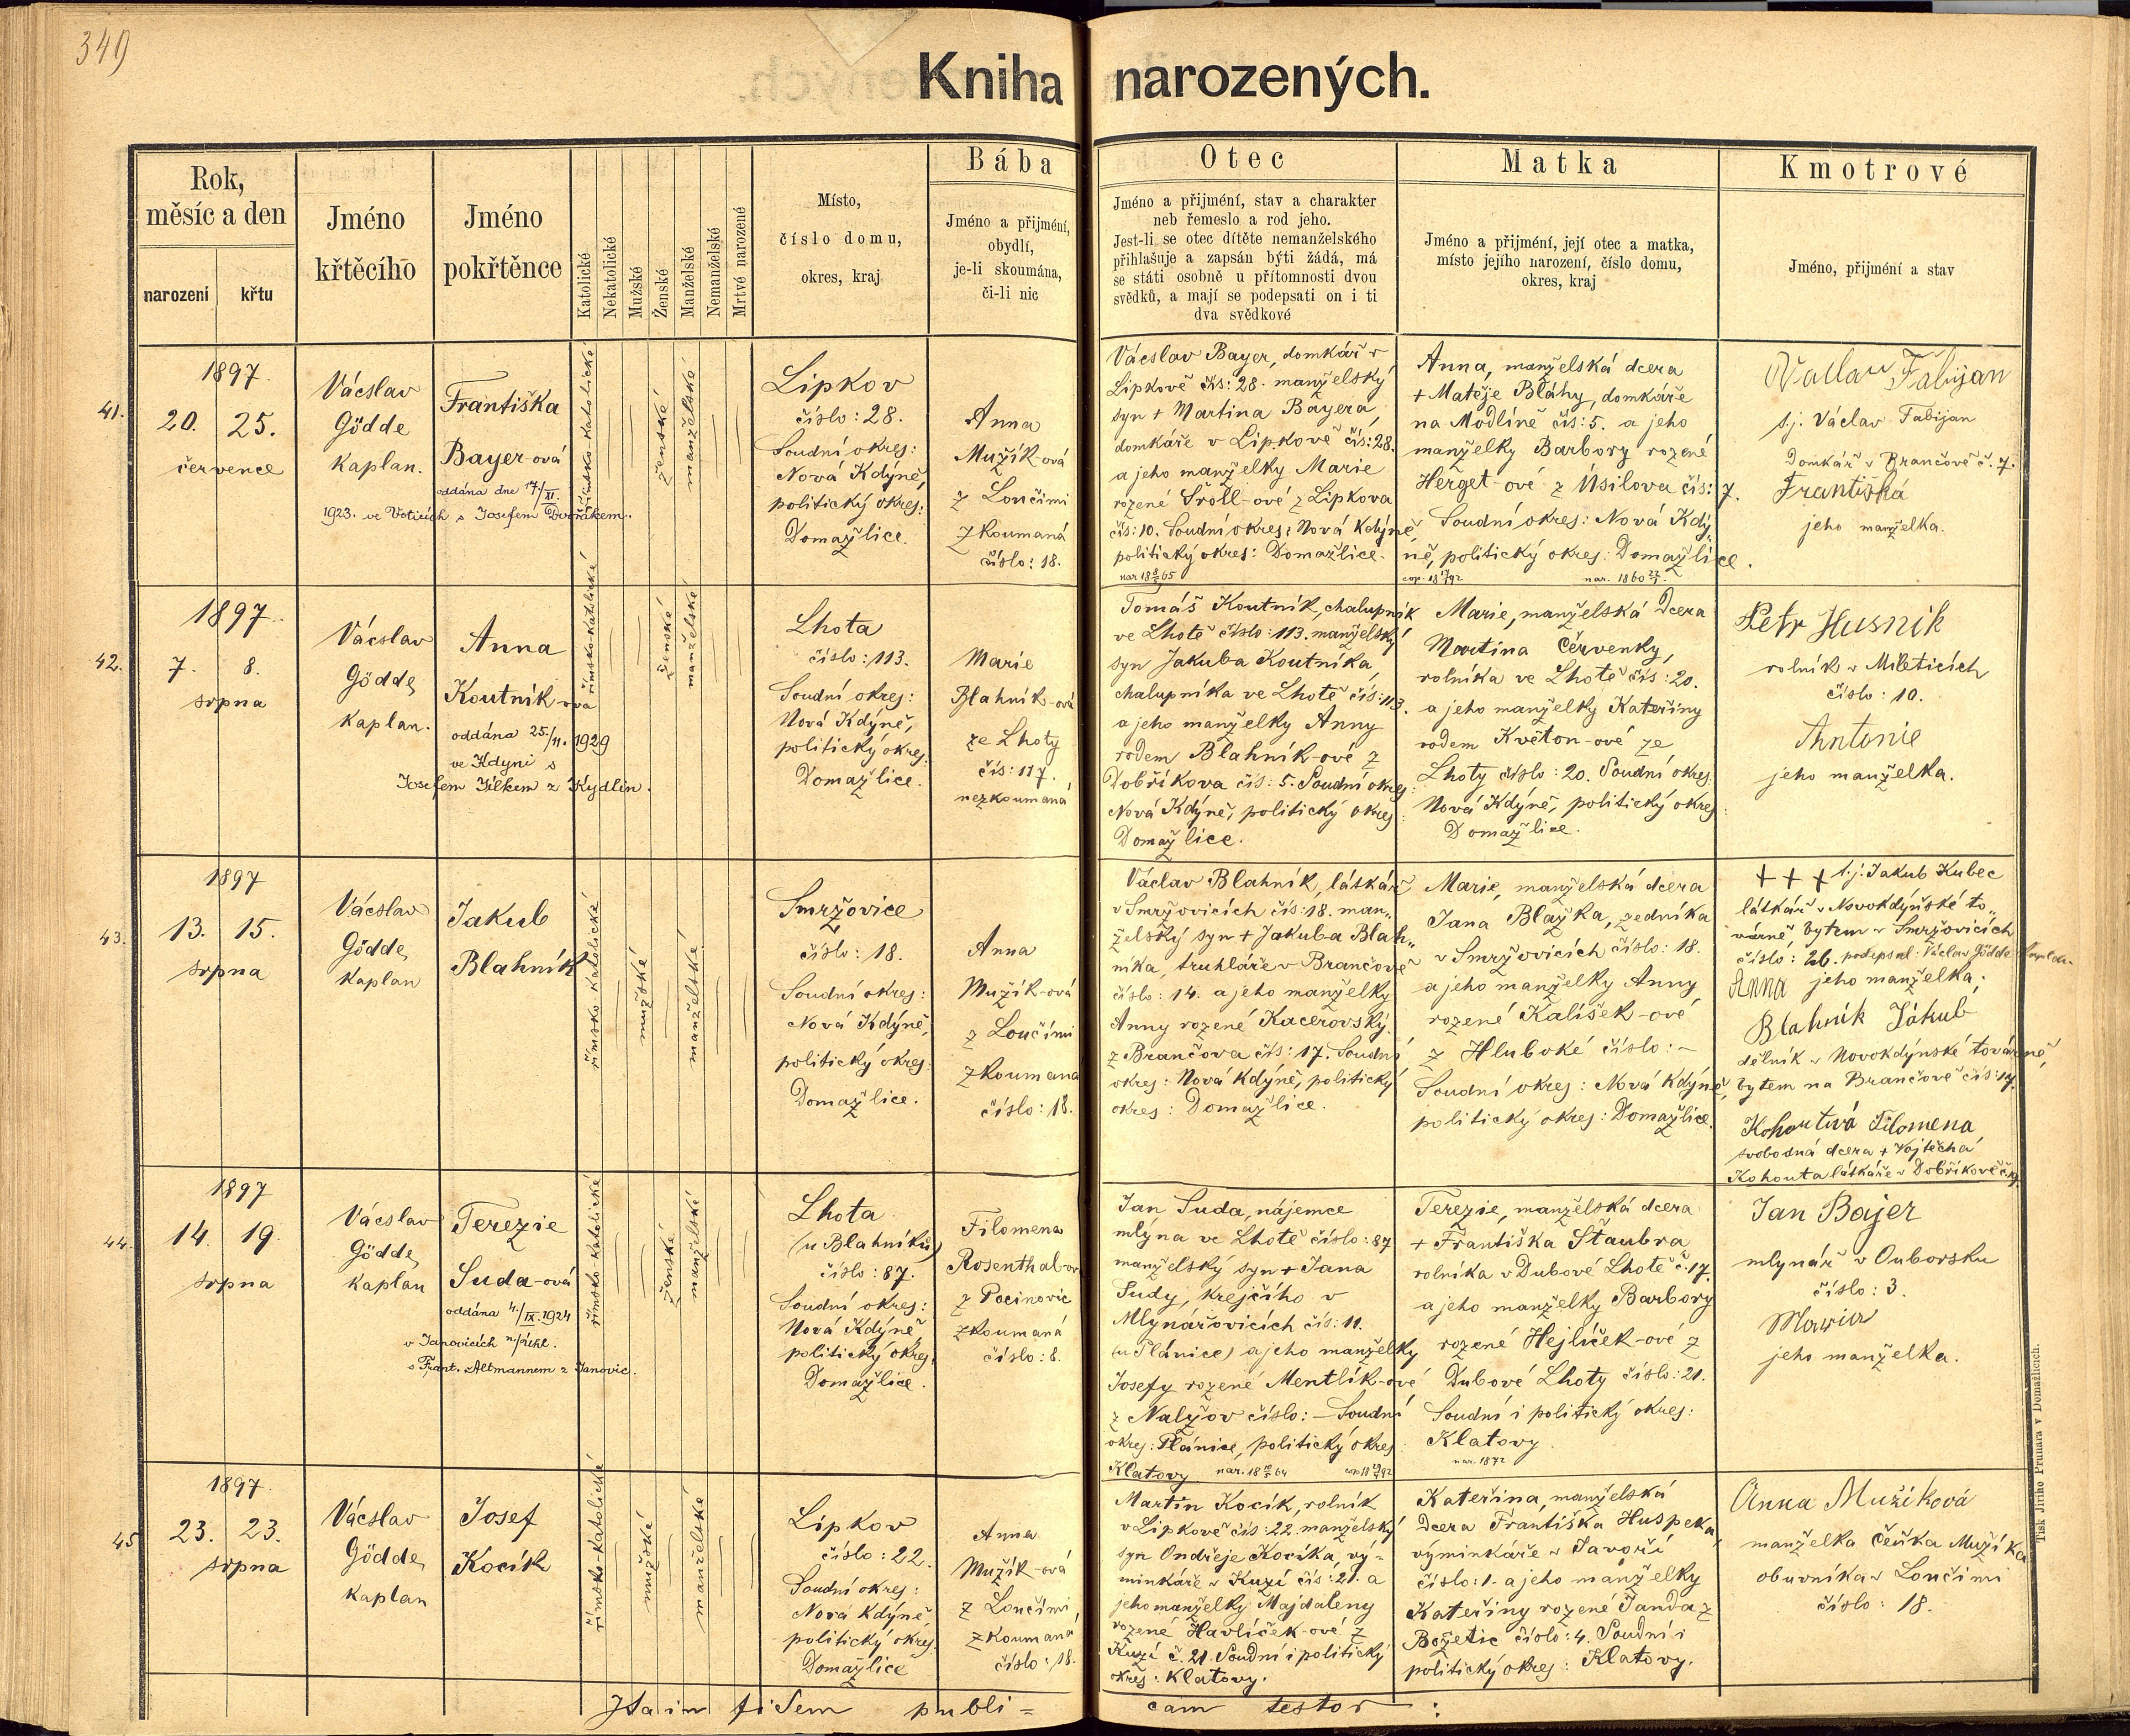 349
Kniha narozených.
Rok,
měsíc a den
narození
křtu
Jméno
křtěcího
Jméno
pokřtěnce
Katolické
Nekatolické
Mužské
Ženské
Manželské
Nemanželské
Mrtvé narozené
Místo,
číslo domu,
okres, kraj
Bába
Jméno a přijmění,
obydlí,
je-li skoumána,
či-li nic
Otec
Jméno a přijmění, stav a charakter
neb řemeslo a rod jeho.
Jest-li se otec dítěte nemanželského
přihlašuje a zapsán býti žádá, má
se státi osobně u přítomnosti dvou
svědků, a mají se podepsati on i ti
dva svědkové
Matka
Jméno a přijmění, její otec a matka,
místo jejího narození, číslo domu,
okres, kraj
Kmotrové
Jméno, přijmění a stav
41.
1897.
20. 25.
července
Vácslav
Gödde
Kaplan.
Františka
Bayer-ová
oddána dne 17/XI.
1923. ve Voticích s Josefem Dvořákem.
římsko-katolické
ženské
manželské
Lipkov
číslo: 28.
Soudní okres:
Nová Kdýně,
politický okres:
Domažlice.
Anna
Mužík-ová
z Loučimi
zkoumaná
číslo: 18.
Vácslav Bayer, domkář v
Lipkově čís: 28. manželský
syn + Martina Bayera,
domkáře v Lipkově čís: 28.
a jeho manželky Marie
rozené Šroll-ové z Lipkova
čís: 10. Soudní okres: Nová Kdýně,
politický okres: Domažlice.
Anna, manželská dcera
+ Matěje Bláhy, domkáře
na Modlíně čís: 5. a jeho
manželky Barbory rozené
Herget-ové z Úsilova čís: 7.
Soudní okres: Nová Kdý„
ně, politický okres: Domažlice.
Václav Fabijan
t.j. Václav Fabijan
Domkář v Brančově č. 7.
Františka
jeho manželka.
42.
1897.
7. 8.
srpna
Vácslav
Gödde,
Kaplan.
Anna
Koutník-ová
oddána 25./11. 1929
ve Kdyni s
Josefem Jílkem z Kydlin.
římsko-katolické
ženské
manželské
Lhota
číslo: 113.
Soudní okres:
Nová Kdýně,
politický okres:
Domažlice.
Marie
Blahník-ová
ze Lhoty
čís: 117.
nezkoumaná
Tomáš Koutník, chalupník
ve Lhotě číslo: 113. manželský
syn Jakuba Koutníka,
chalupníka ve Lhotě čís: 113.
a jeho manželky Anny
rodem Blahník-ové z
Dobříkova čís: 5. Soudní okres:
Nová Kdýně, politický okres:
Domažlice.
Marie, manželská dcera
Martina Červenky,
rolníka ve Lhotě čís: 20.
a jeho manželky Kateřiny
rodem Květon-ové ze
Lhoty číslo: 20. Soudní okres:
Nová Kdýně, politický okres:
Domažlice.
Petr Husnik
rolník v Mileticích
číslo: 10.
Antonie
jeho manželka.
43.
1897
13. 15.
srpna
Vácslav
Gödde,
Kaplan
Jakub
Blahník
římsko katolické
mužské
manželské
Smržovice
číslo: 18.
Soudní okres:
Nová Kdýně,
politický okres:
Domažlice.
Anna
Mužík-ová
z Loučimi
zkoumana
číslo: 18.
Václav Blahník, látkář
v Smržovicích čís: 18. man„
želský syn + Jakuba Blah„
níka, truhláře v Brančově
číslo: 14. a jeho manželky
Anny rozené Kacerovský
z Brančova čís: 17. Soudní
okres: Nová Kdýně, politický
okres: Domažlice.
Marie, manželská dcera
Jana Blažka, zedníka
v Smržovicích číslo: 18.
a jeho manželky Anny
rozené Kalíšek-ové
z Hluboké číslo: –
Soudní okres: Nová Kdýně,
politický okres: Domažlice.
+ + + t.j. Jakub Kubec
látkář v Novokdýňské to„
várně, bytem v Smržovicích
číslo: 26. podepsal: Václav Gödde Kaplan
Anna jeho manželka;
Blahník Jákub
dělník v Novokdýnské továrně,
bytem na Brančově čís: 17.
Kohoutová Filomena
svobodná dcera + Vojtěcha
Kohouta látkáře v Dobříkově
44.
1897
14. 19.
srpna
Vácslav
Gödde,
Kaplan
Terezie
Suda-ová
oddána 4./IX. 1924
v Janovicích n./Úhl.
s Frant. Altmannem z Janovic.
římsko-katolické
ženské
manželské
Lhota
(u Blahníků)
číslo: 87.
Soudní okres:
Nová Kdýně,
politický okres:
Domažlice.
Filomena
Rosenthal-ov
z Pocinovic
zkoumaná
číslo: 8.
Jan Suda, nájemce
mlýna ve Lhotě číslo: 87
manželský syn + Jana
Sudy, krejčího v
Mlynářovicích čís: 11.
(u Plánice) a jeho manželky
Josefy rozené Mentlík-ové
z Nalžov číslo: – Soudní
okres: Plánice, politický okres:
Klatovy
Terezie, manželská dcera
+ Františka Štaubra
rolníka v Dubové Lhotě č. 17.
a jeho manželky Barbory
rozené Hejlíček-ové z
Dubové Lhoty číslo: 21.
Soudní i politický okres:
Klatovy.
nar. 1872
Jan Bajer
mlynář v Ouborsku
číslo: 3.
Marie
jeho manželka.
45
1897.
23. 23.
srpna
Vácslav
Gödde,
Kaplan
Josef
Kocík
římsko-katolické
mužské
manželské
Lipkov
číslo: 22.
Soudní okres:
Nová Kdýně
politický okres:
Domažlice
Anna
Mužík-ová
z Loučimi,
zkoumaná
číslo: 18.
Martin Kocík, rolník
v Lipkově čís: 22. manželský
syn Ondřeje Kocíka, vý-
minkáře v Kuzí čís: 21. a
jeho manželky Majdaleny
rozené Havlíček-ové z
Kuzí č. 21. Soudní i politický
okres: Klatovy.
Kateřina, manželská
dcera Františka Huspeka,
výminkáře v Javoří
číslo: 1. a jeho manželky
Kateřiny rozené Janda z
Božetic číslo: 4. Soudní i
politický okres: Klatovy.
Anna Mužíková
manželka Čeňka Mužíka
obuvníka v Loučimi
číslo: 18.
Ita in fidem publi=cam testor:
Tisk Jiřího Prunara v Domažlicích.